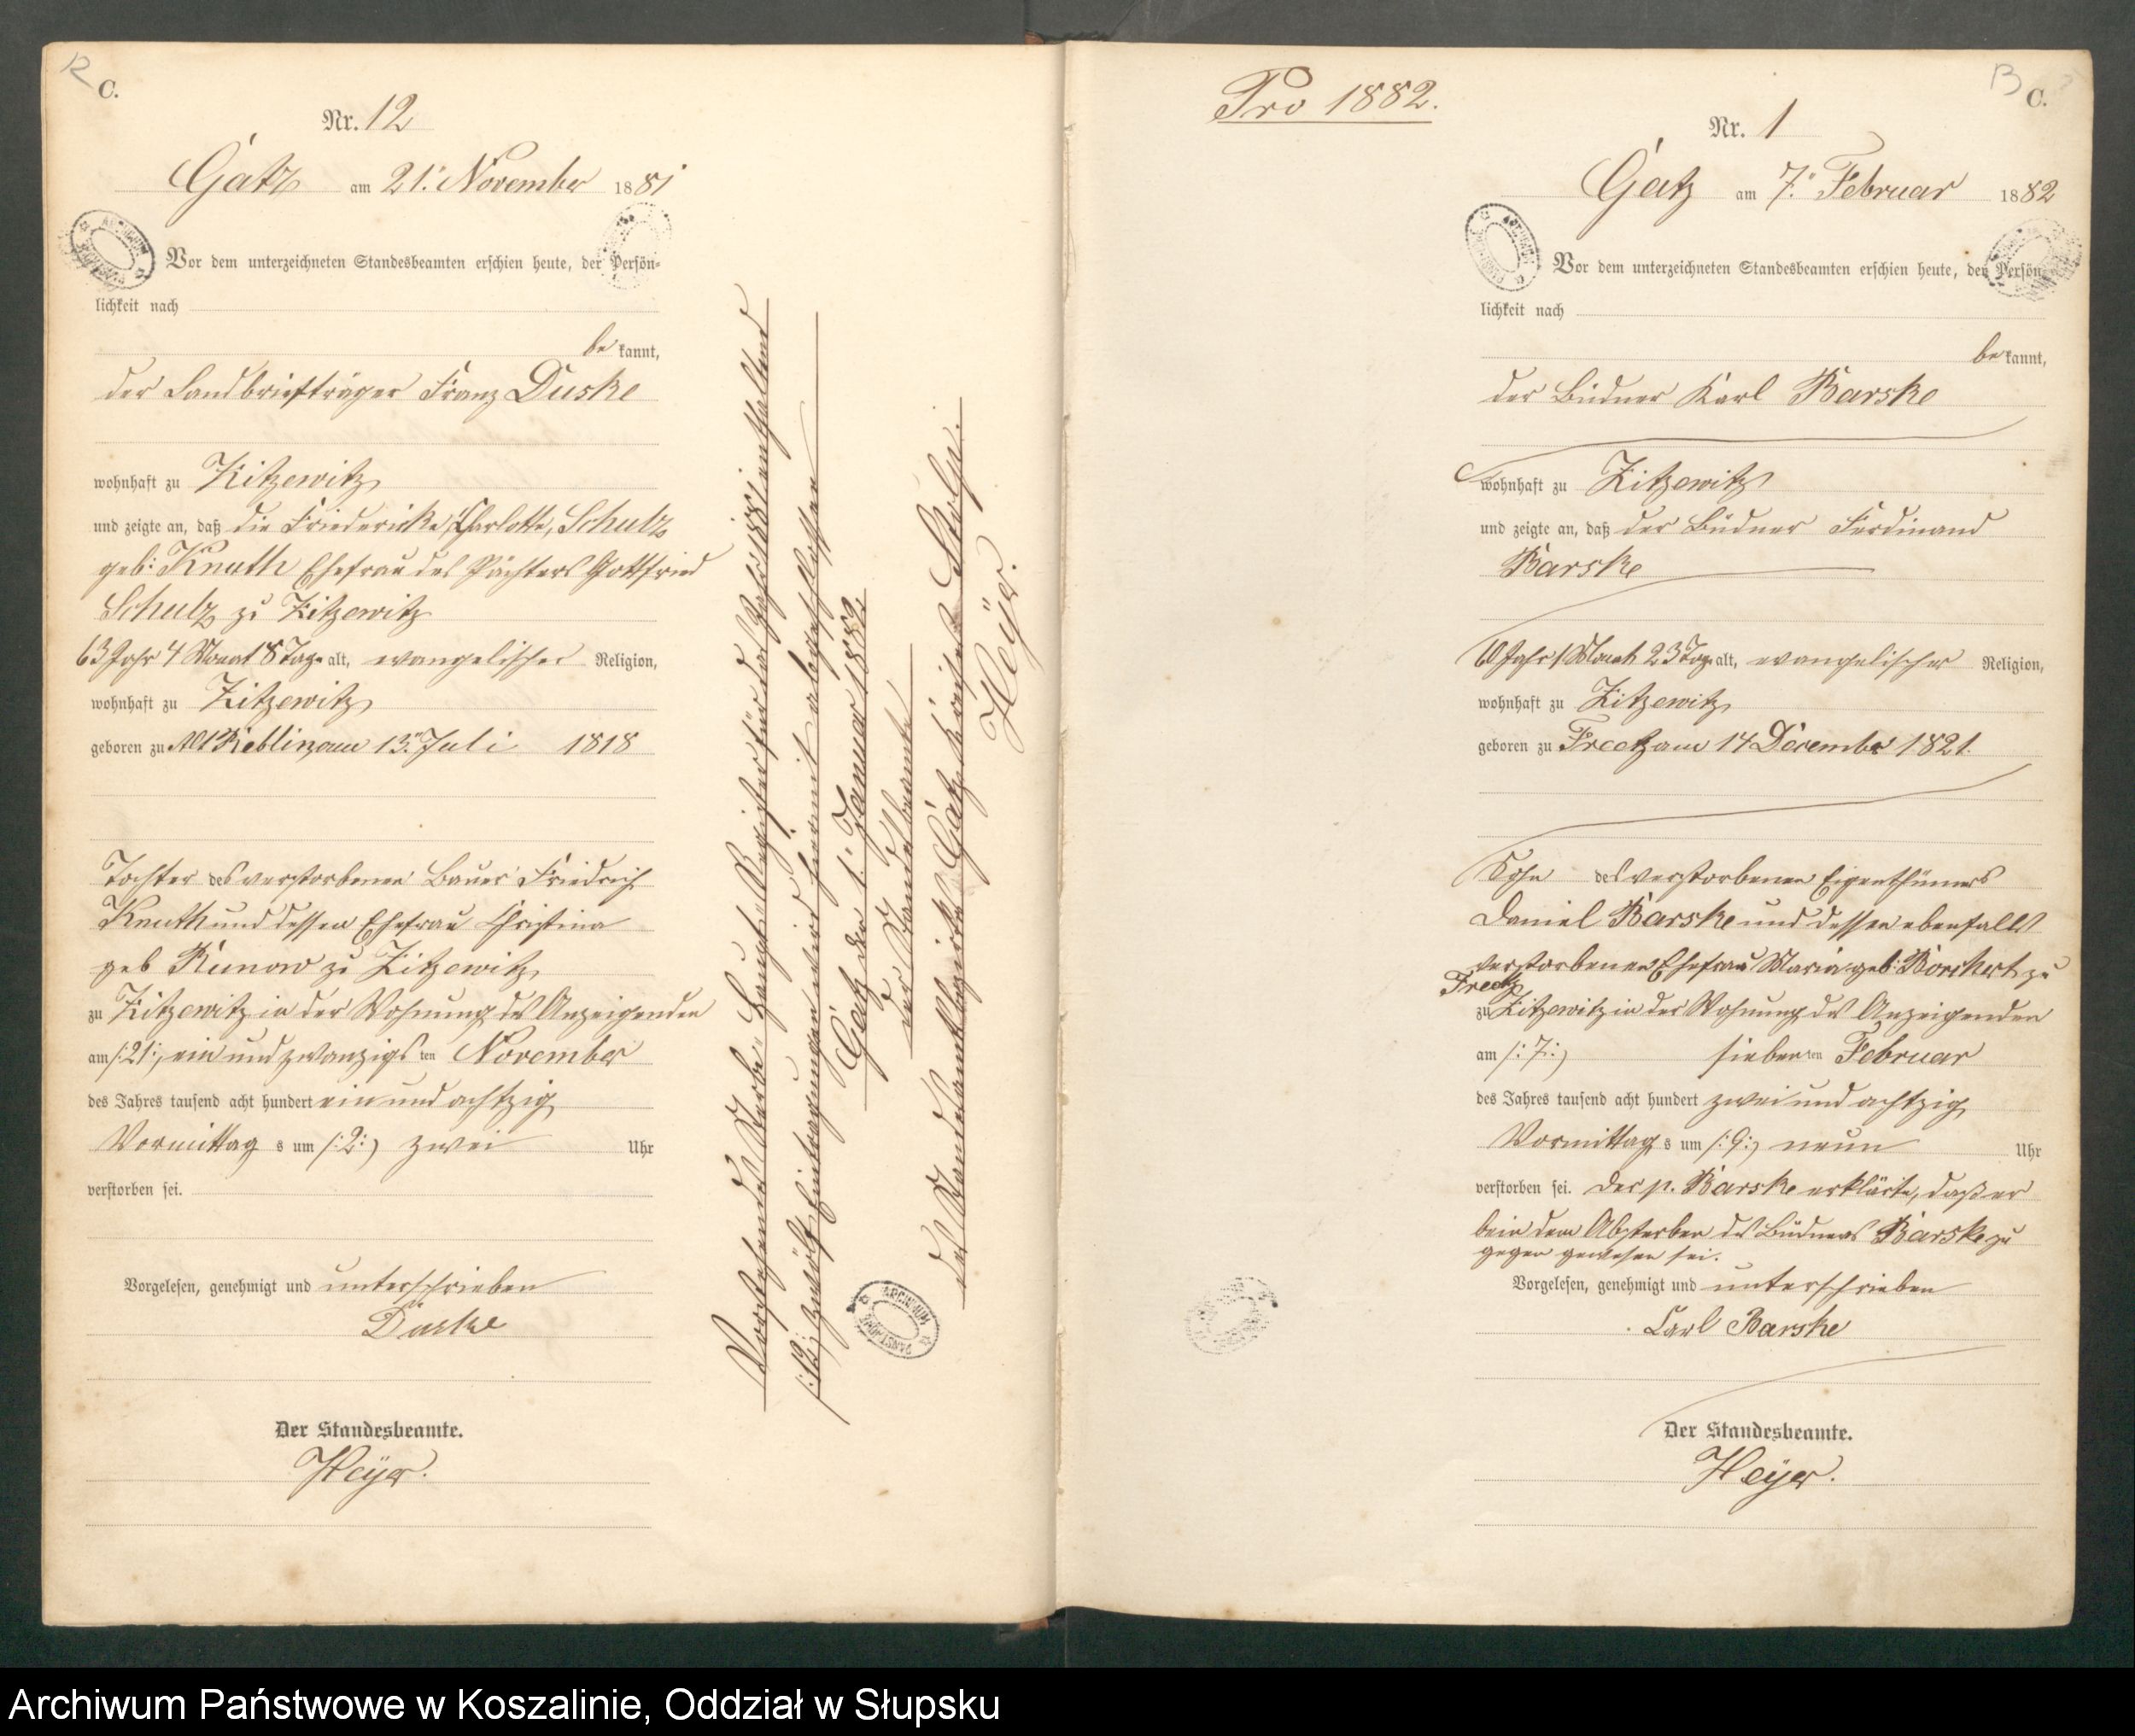 12
C.
Nr. 12
Gatz am 21. November 1881
Vor dem unterzeichneten Standesbeamten erschien heute, der Persön-
lichkeit nach
be kannt,
der Landbriefträger Franz Duske
wohnhaft zu Zitzewitz
und zeigte an, daß die Friedericke, Charlotte, Schulz
geb: Knuth Ehefrau des Pächters Gottfried
Schulz zu Zitzewitz
63 Jahr 4 Monat 8 Tage alt, evangelischer Religion,
wohnhaft zu Zitzewitz
geboren zu Alt Reblin am 13. Juli 1818
Tochter des verstorbenen Bauer Friedrich
Knuth und dessen Ehefrau Christina
geb Kunow zu Zitzewitz
zu Zitzewitz in der Wohnung des Anzeigenden
am /:21:/ ein und zwanzigs ten November
des Jahres tausend acht hundert ein und achtzig
Vormittag s um /:2:/ zwei Uhr
verstorben sei.
Vorgelesen, genehmigt und unterschrieben
Duske
Der Standesbeamte.
Heyer.
Vorstehendes Sterbe Haupt Register für das Jahr 1881 enthaltend
/:12:/ zwölf Eintragungen wird hiermit abgeschlossen
Gatz den 1. Januar 1882
der Standesbeamte
des Standesamtsbezirks Gatz, Kreises Stolp.
Heyer.
Pro 1882.
13
C.
Nr. 1
Gatz am 7. Februar 1882
Vor dem unterzeichneten Standesbeamten erschien heute, der Persön-
lichkeit nach
be kannt,
der Büdner Karl Barske
wohnhaft zu Zitzewitz
und zeigte an, daß der Büdner Ferdinand
Barske
60 Jahr 1 Monat 23 Tage alt, evangelischer Religion,
wohnhaft zu Zitzewitz
geboren zu Freetz am 14 December 1821.
Sohn des verstorbenen Eigenthümers
Daniel Barske und dessen ebenfalls
verstorbenen Ehefrau Maria geb: Borchert zu
Freetz
zu Zitzewitz in der Wohnung des Anzeigenden
am /:7:/ sieben ten Februar
des Jahres tausend acht hundert zwei und achtzig
Vormittag s um /:9:/ neun Uhr
verstorben sei. Der p. Barske erklärte, daß er
bein dem Absterben des Büdners Barske zu
gegen gewesen sei.
Vorgelesen, genehmigt und unterschrieben
Carl Barske
Der Standesbeamte.
Heyer.
Archiwum Państwowe w Koszalinie, Oddział w Słupsku